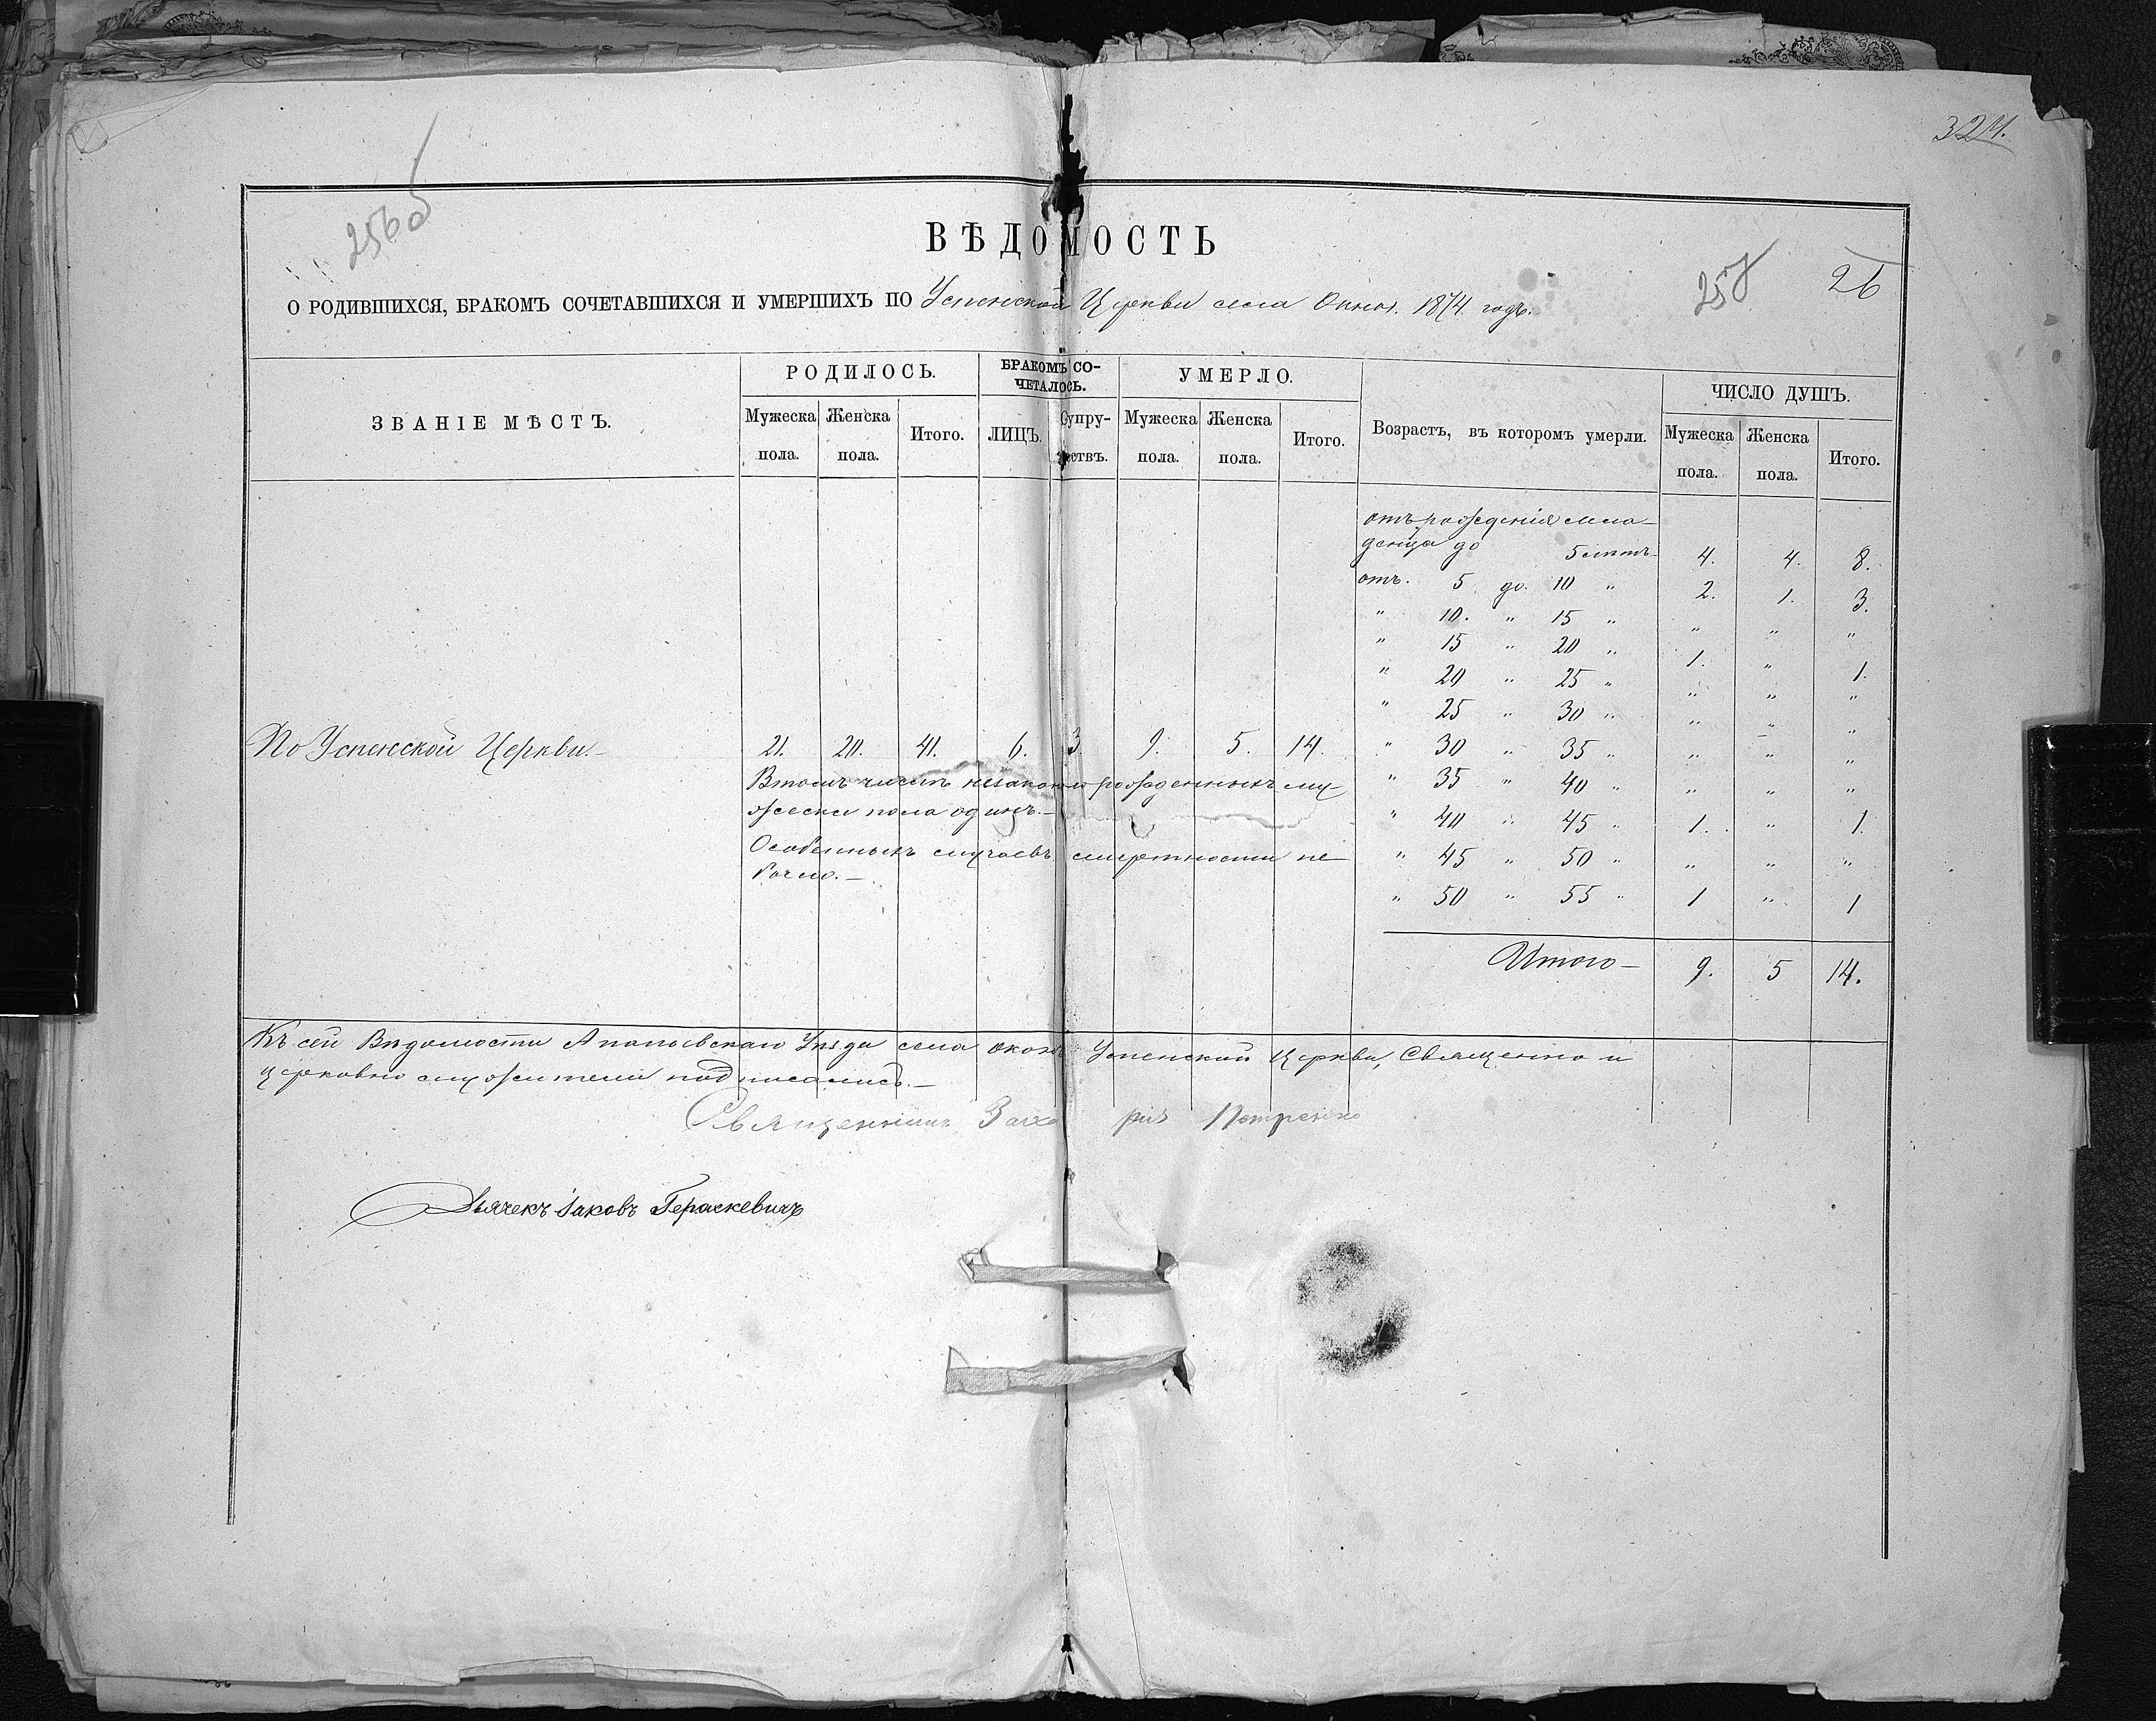 324.
256 об
ВѢДОМОСТЬ
257 26
О РОДИВШИХСЯ, БРАКОМЪ СОЧЕТАВШИХСЯ И УМЕРШИХЪ ПО Успенской Церкви села Окноя. 1874 годъ.
ЗВАНІЕ МѢСТЪ.
РОДИЛОСЬ.
Мужеска пола.
Женска пола.
Итого.
БРАКОМЪ СО-
ЧЕТАЛОСЬ.
ЛИЦЪ.
Супру-
жествъ.
УМЕРЛО.
Мужеска пола.
Женска пола.
Итого.
Возрастъ, въ которомъ умерли.
ЧИСЛО ДУШЪ.
Мужеска пола.
Женска пола.
Итого.
По Успенской Церкви.— 21. 20. 41. 6. 3. 9. 5. 14.
Втомъ числѣ незаконно рожденныхъ му-
жеска пола одинъ.—
Особенныхъ случаевъ смертности не
было.—
отъ рожденія мла-
денца до 5 лѣтъ 4. 4. 8.
отъ. 5. до. 10 „ 2. 1. 3.
„ 10. „ 15 „ „ „ „
„ 15 „ 20 „ 1. „ 1.
„ 20 „ 25 „ „ „ „
„ 25 „ 30 „ „ „ „
„ 30 „ 35 „ „ „ „
„ 35 „ 40 „ „ „ „
„ 40 „ 45 „ 1. „ 1.
„ 45 „ 50 „ „ „ „
„ 50 „ 55 „ 1 „ 1
Итого— 9. 5 14.
Къ сей Вѣдомости Ананьевскаго Уѣзда села Окноя Успенской Церкви, Священно и
церковно служители подписались.—
Священникъ Захарій Петренко
Дьячекъ Іаковъ Гераскевичъ